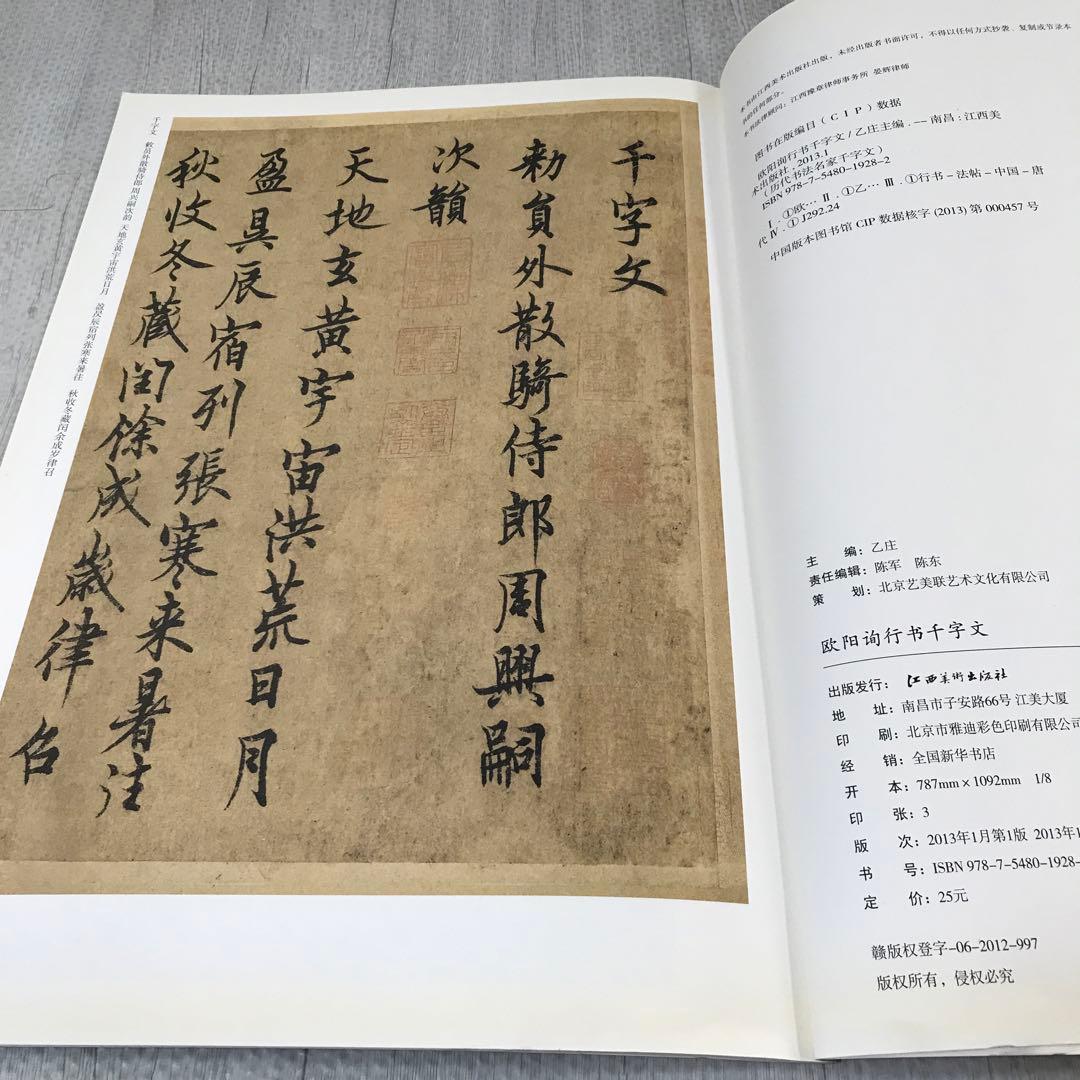 千字文
勅員外散騎侍郎周興嗣
次韻
天地玄黃宇宙洪荒日月
盈昃辰宿列張寒来暑往
秋收冬藏閏餘成歲律召
千字文 敕员外散骑侍郎周兴嗣次韵 天地玄黄宇宙洪荒日月 盈昃辰宿列张寒来暑往 秋收冬藏闰余成岁律召
本书由江西美术出版社出版，未经出版者书面许可，不得以任何方式抄袭、复制或节录本
书的任何部分。
本书法律顾问：江西豫章律师事务所 晏辉律师
图书在版编目（CIP）数据
欧阳询行书千字文/乙庄主编.--南昌:江西美
术出版社，2013.1
（历代书法名家千字文）
ISBN 978-7-5480-1928-2
Ⅰ.①欧… Ⅱ.①乙… Ⅲ.①行书－法帖－中国－唐
代 Ⅳ.①J292.24
中国版本图书馆CIP数据核字(2013)第000457号
主 编：乙庄
责任编辑：陈军 陈东
策 划：北京艺美联艺术文化有限公司
欧阳询行书千字文
出版发行：江西美術出版社
地 址：南昌市子安路66号 江美大厦
印 刷：北京市雅迪彩色印刷有限公司
经 销：全国新华书店
开 本：787mm×1092mm 1/8
印 张：3
版 次：2013年1月第1版 2013年1
书 号：ISBN 978-7-5480-1928-
定 价：25元
赣版权登字-06-2012-997
版权所有，侵权必究